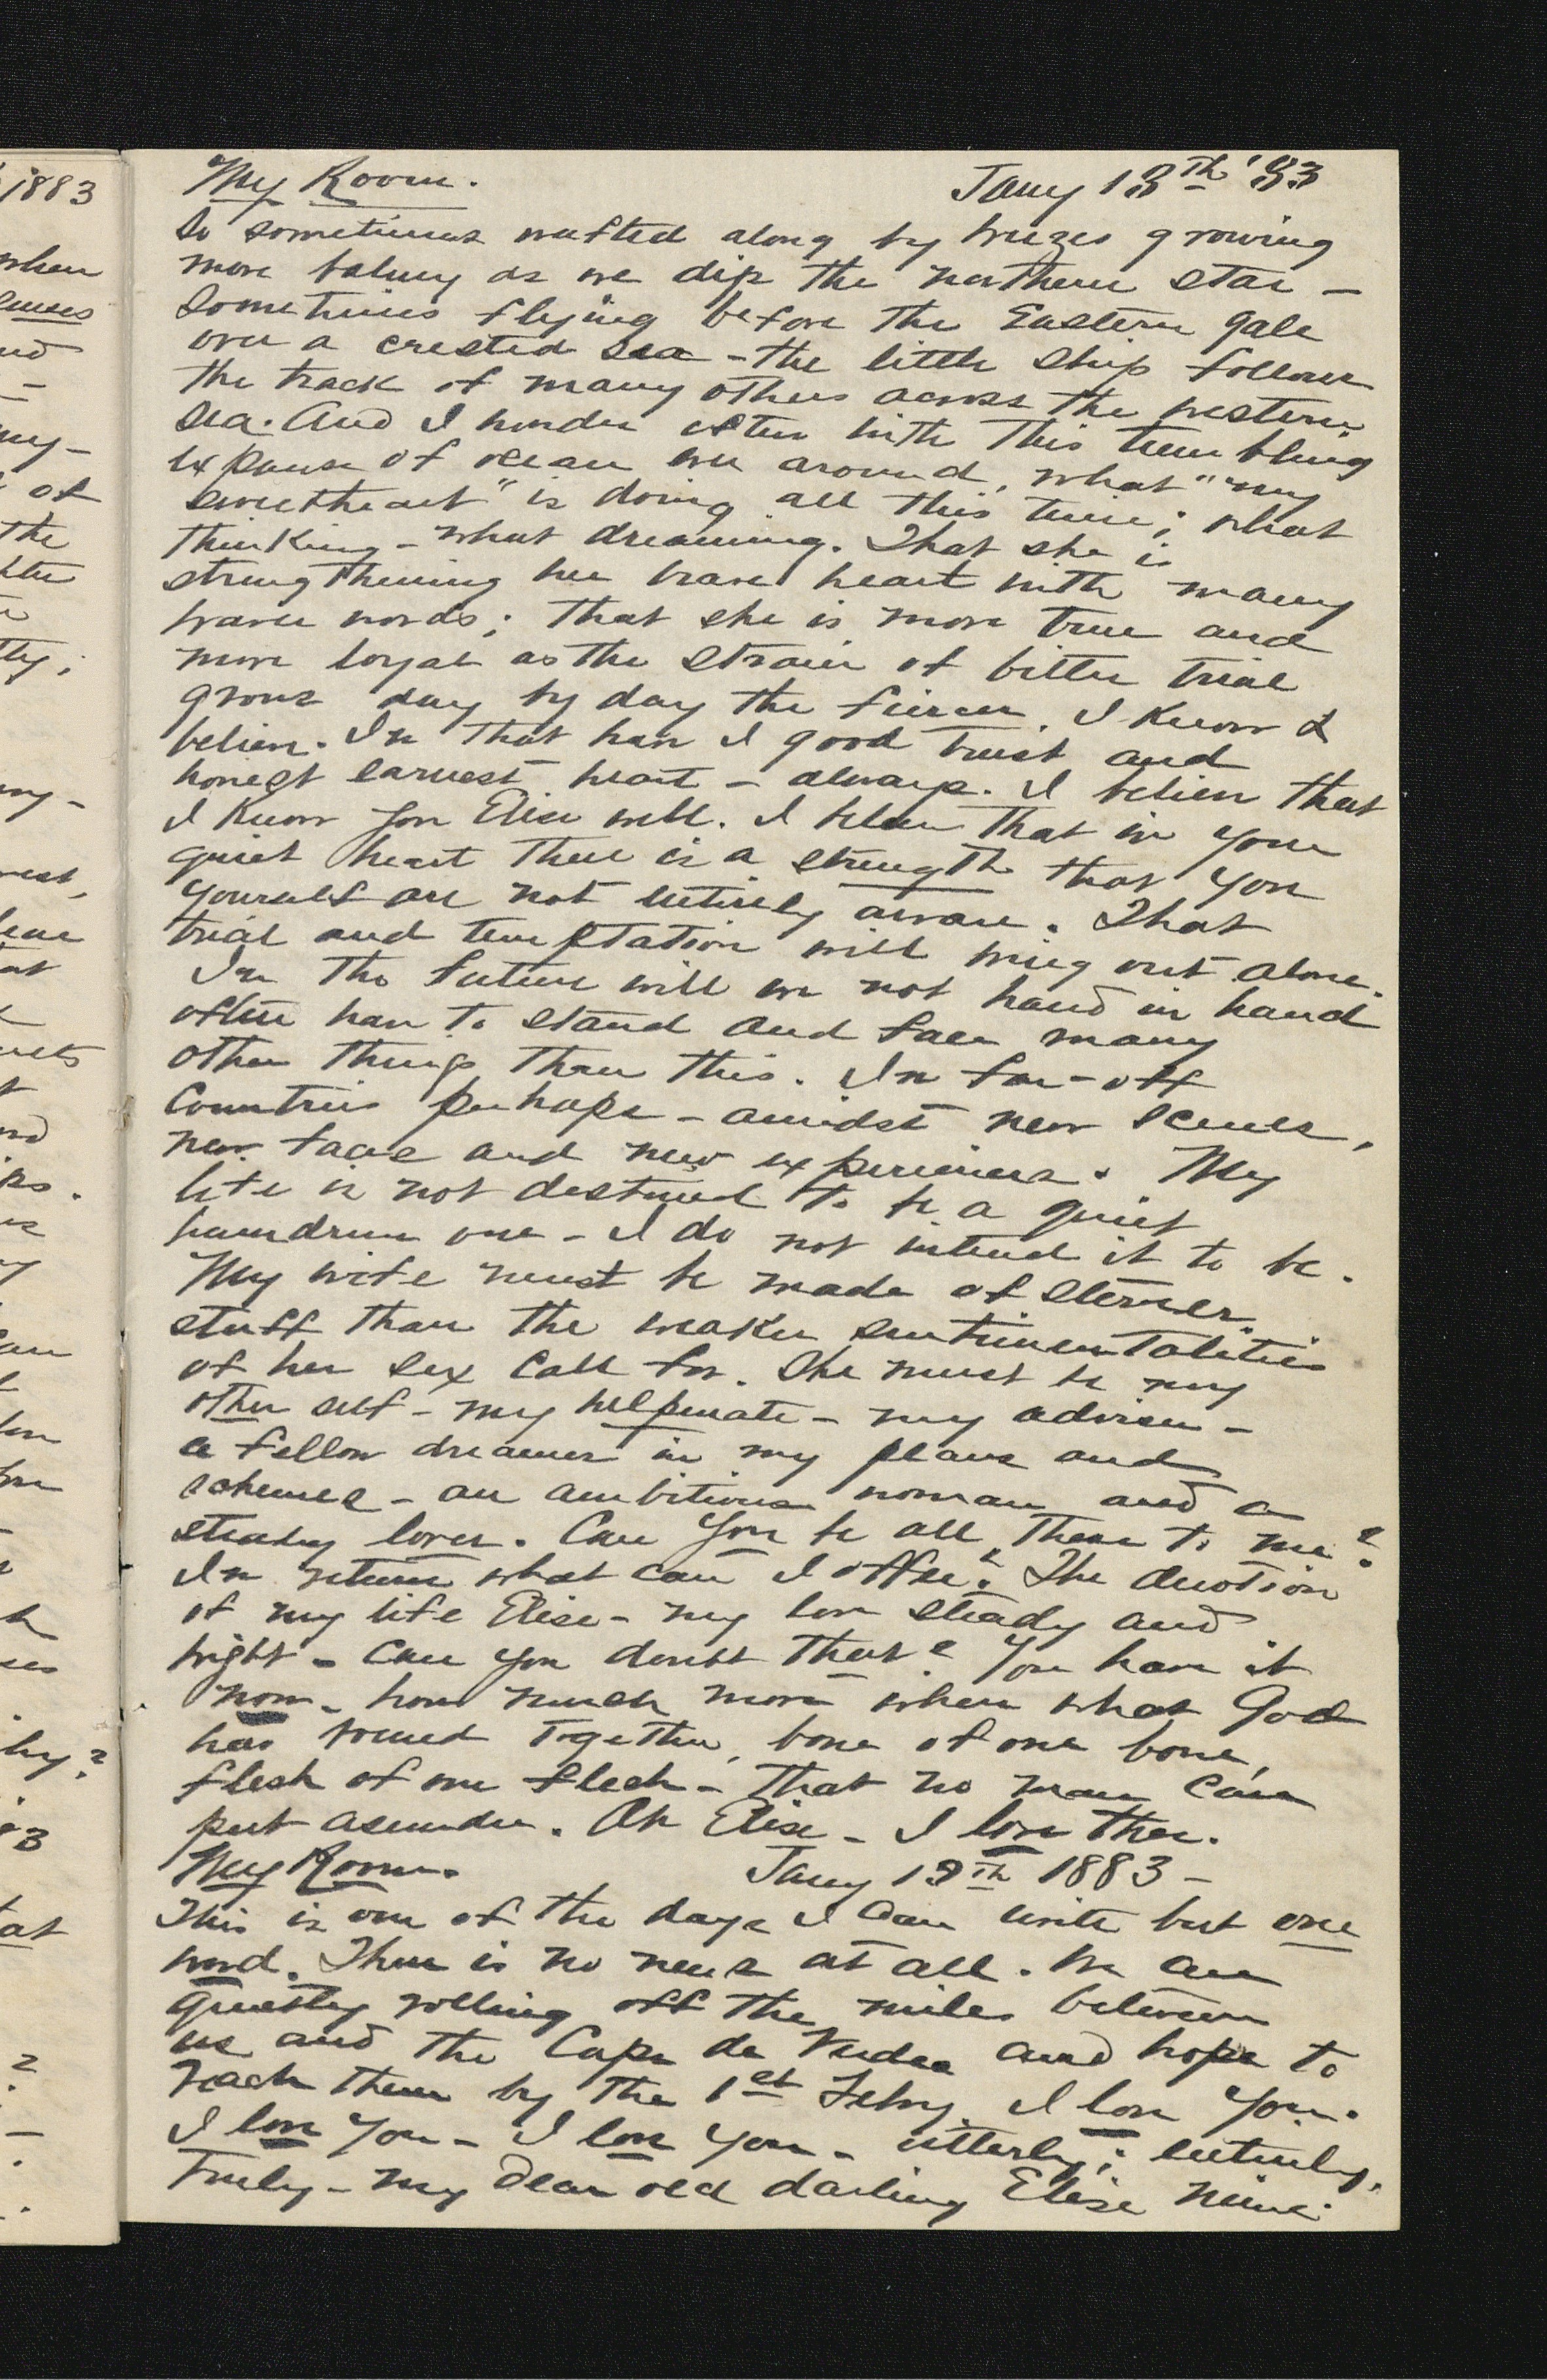 1883
when
of
the
My Room. Jany 18th '83
So sometimes wafted along by breezes growing
more balmy as we dip the northern star –
Sometimes flying before the Eastern gale
over a crested sea – the little ship follows
the track of many others across the western
sea. And I wonder often with this trembling
expanse of ocean ever around, what "my
sweetheart" is doing all this time; what
thinking – what dreaming. That she is
strengthening her brave heart with many
braver words; that she is more true and
more loyal as the strain of bitter trial
grows day by day the fiercer. I know &
believe. In that have I good trust and
honest earnest heart – always. I believe that
I know you Elise well. I believe that in your
quiet heart there is a strength that you
yourself are not entirely aware. That
trial and temptation will bring out alone.
In the future will we not hand in hand
often have to stand and face many
other things than this. In far-off
Countries perhaps – amidst new scenes,
new faces and new experiences. My
life is not destined to be a quiet
humdrum one – I do not intend it to be.
My wife must be made of sterner
stuff than the weaker sentimentalities
of her sex call for. She must be my
other self – my helpmate – my adviser –
a fellow dreamer in my plans and
schemes – an ambitious woman and a
steady lover. Can you be all these to me?
In return what can I offer? The devotion
of my life Elise – my love steady and
bright – Can you doubt that? You have it
now – how much more when what God
has joined together, bone of one bone,
flesh of one flesh – that no man can
put asunder. Oh Elise – I love thee.
My Room. Jany 19th 1883 –
This is one of the days I can write but one
word. There is no news at all. We are
quietly rolling off the miles between
us and the Cape de Verdes and hope to
reach them by the 1st Feby. I love you.
I love you – I love you – utterly; entirely,
truly – my dear old darling Elise mine.